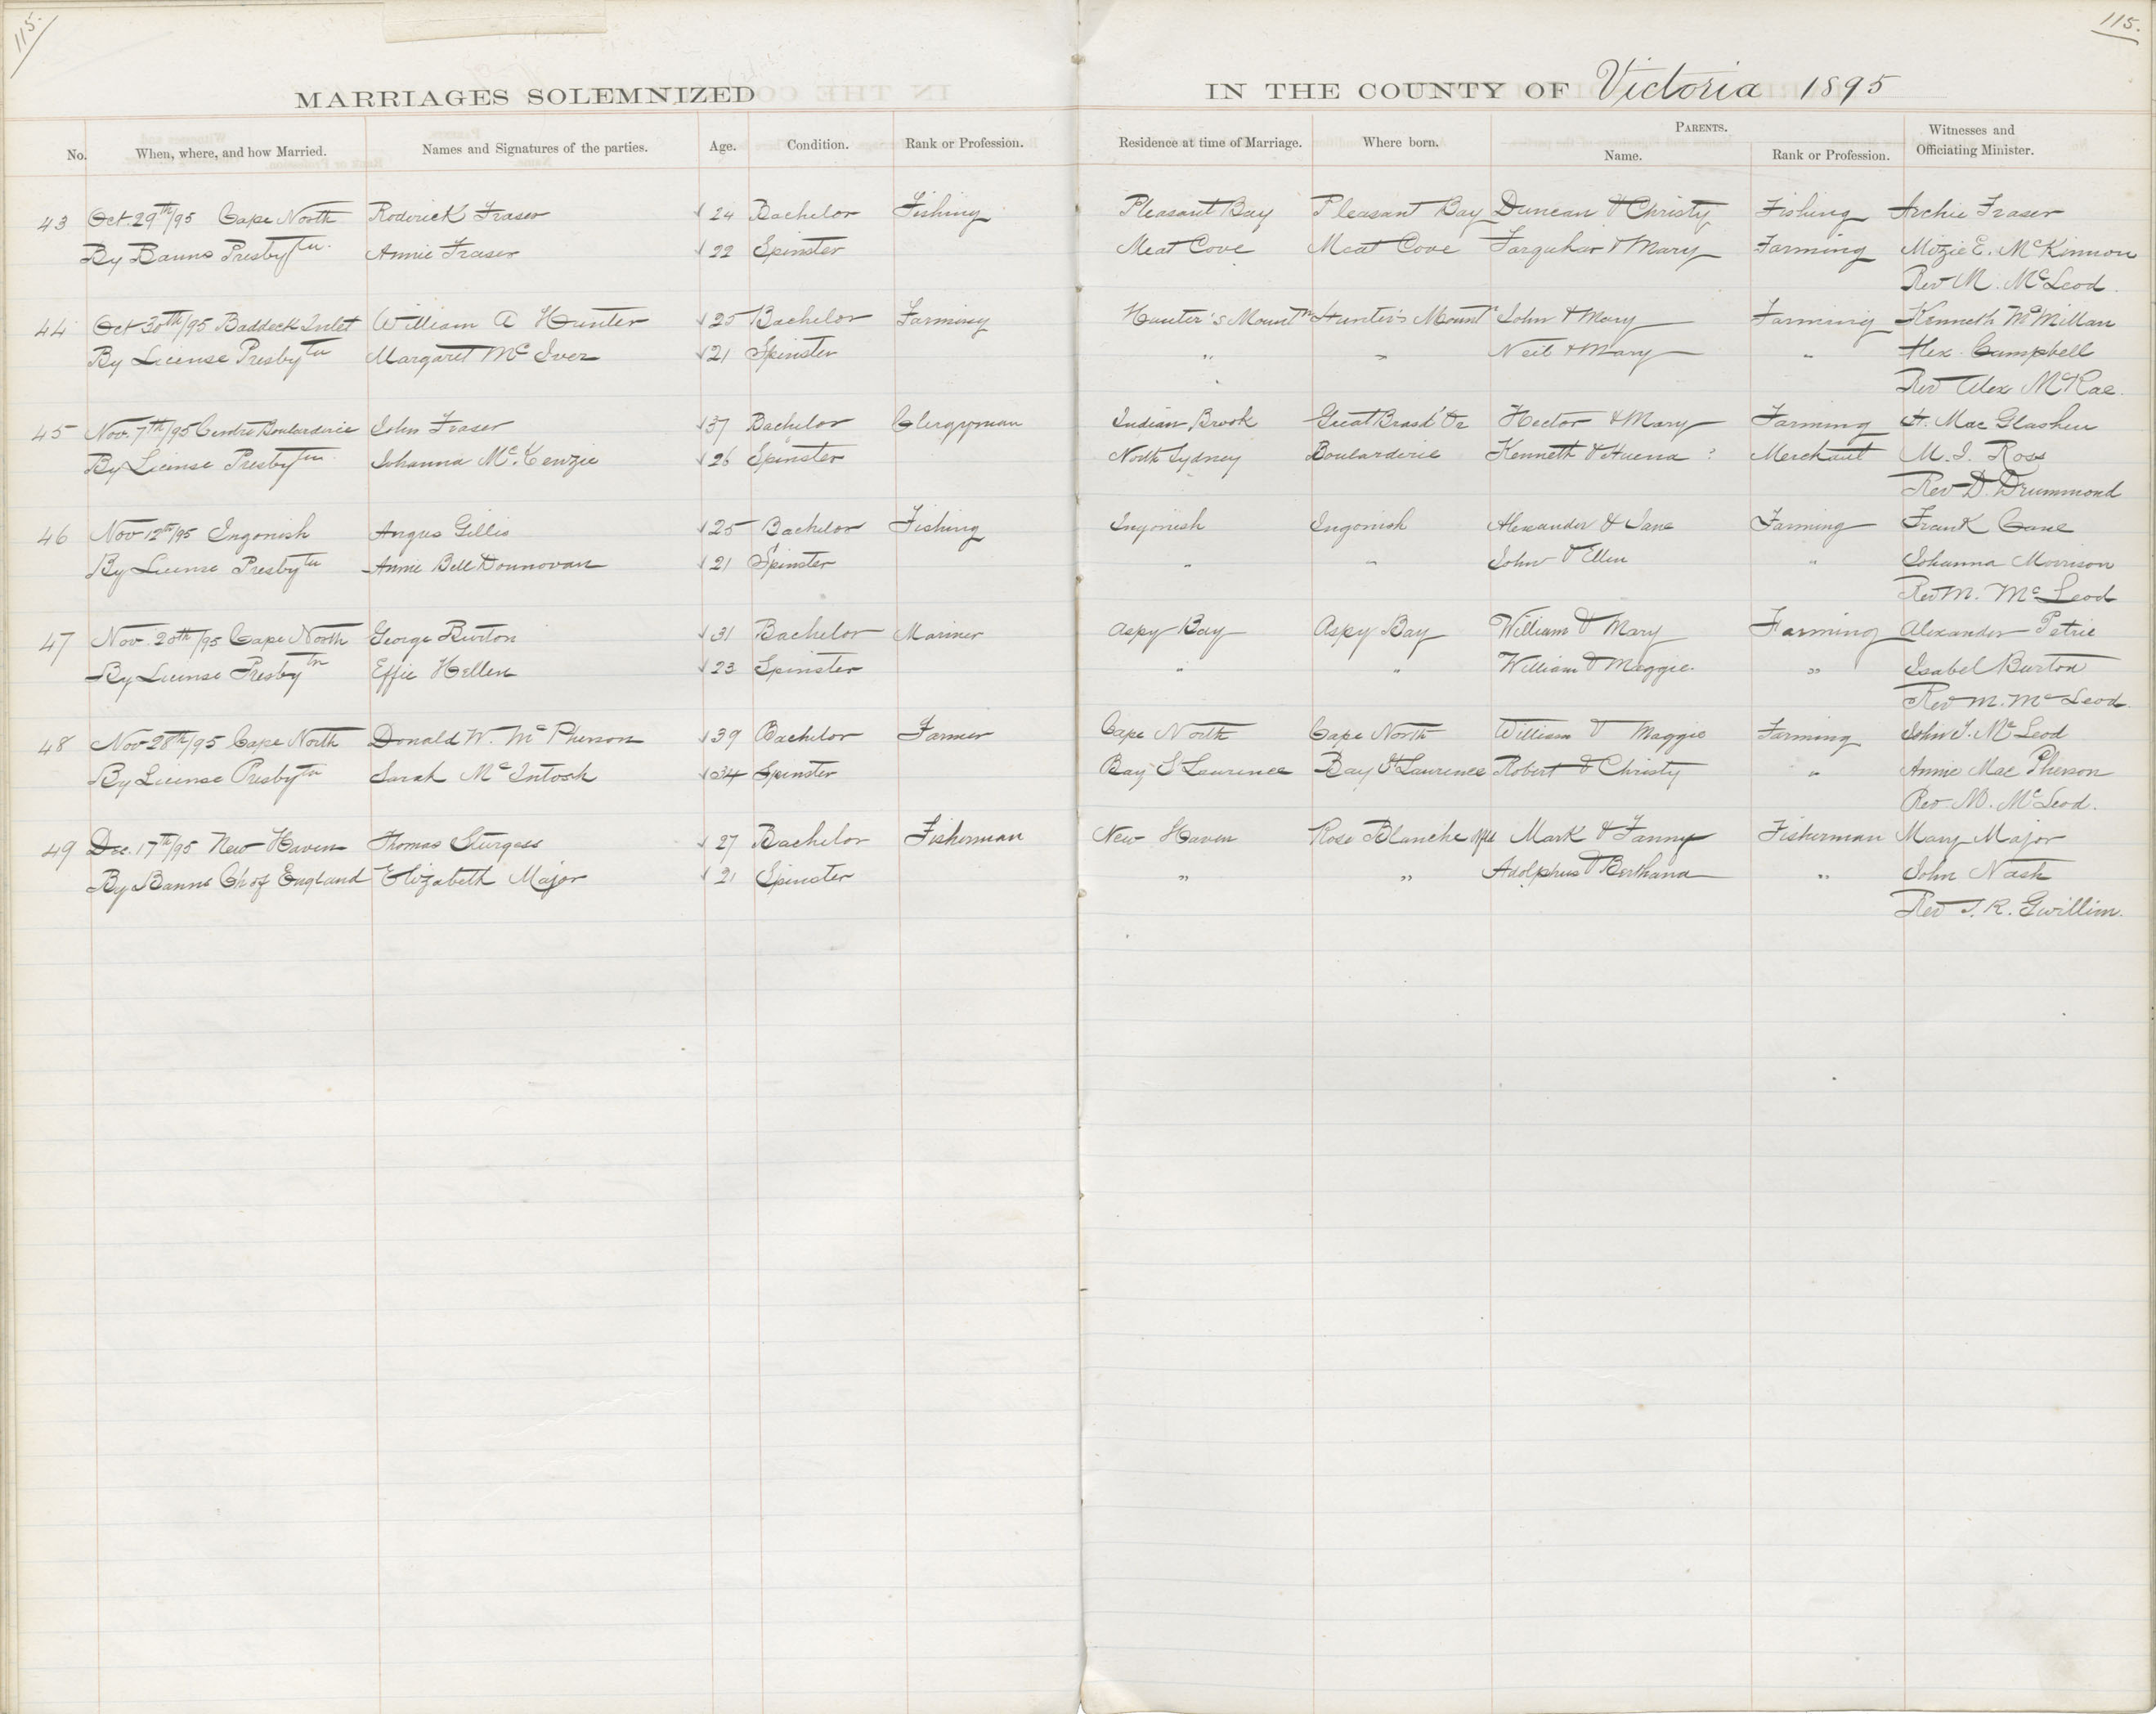 115.
115.
MARRIAGES SOLEMNIZED IN THE COUNTY OF Victoria 1895
No. When, where, and how Married. Names and Signatures of the parties. Age. Condition. Rank or Profession. Residence at time of Marriage. Where born. PARENTS. Name. Rank or Profession. Witnesses and Officiating Minister.
43 Oct. 29th/95 Cape North Roderick Fraser √ 24 Bachelor Fishing Pleasant Bay Pleasant Bay Duncan & Christy Fishing Archie Fraser
By Banns Presbytn. Annie Fraser √ 22 Spinster Meat Cove Meat Cove Farquhar & Mary Farming E. McKinnon
Rev M. McLeod.
44 Oct 30th/95 Baddeck Inlet William A Hunter √ 25 Bachelor Farming Hunter's Mountn Hunter's Mountn John & Mary Farming Kenneth McMillan
By License Presbytn Margaret McIver √ 21 Spinster " " Neil & Mary " Alex. Campbell
Rev Alex McRae.
45 Nov. 7th/95 Centre Boularderie John Fraser √ 37 Bachelor Clergyman Indian Brook Great Brasd'Or Hector & Mary Farming H. Mac Glashen
By License Presbytn Johanna McKenzie √ 26 Spinster North Sydney Boularderie Kenneth & Huena ? Merchant M. J. Ross
Rev D. Drummond
46 Nov 12th/95 Ingonish Angus Gillis √ 25 Bachelor Fishing Ingonish Ingonish Alexander & Jane Farming Frank Cane
By License Presbytn Annie Bell Donnovan √ 21 Spinster " " John & Ellen " Johanna Morrison
Rev M. McLeod
47 Nov. 20th/95 Cape North George Burton √ 31 Bachelor Mariner Aspy Bay Aspy Bay William & Mary Farming Alexander Petrie
By License Presbytn Effie Hellen √ 23 Spinster " " William & Maggie. " Isabel Burton
Rev M. McLeod.
48 Nov 28th/95 Cape North Donald W. McPherson √ 39 Bachelor Farmer Cape North Cape North William & Maggie Farming John J. McLeod
By License Presbytn Sarah McIntosh √ 34 Spinster Bay S Laurence Bay St Laurence Robert & Christy " Annie Mac Pherson
Rev. M. McLeod.
49 Dec. 17th/95 New Haven Thomas Sturgess √ 27 Bachelor Fisherman New Haven Rose Blanche Nfld Mark & Fanny Fisherman Mary Major
By Banns Ch of England Elizabeth Major √ 21 Spinster " " Adolphus & Berthana " John Nash
Rev T. R. Gwillim.